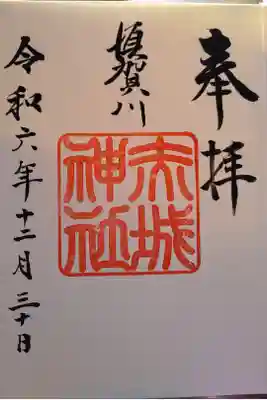 奉拝
須賀川
赤城
神社
令和六年十二月三十日